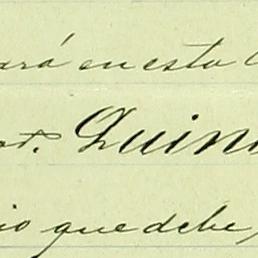 ará en esta
Art. Quin
io que debe,